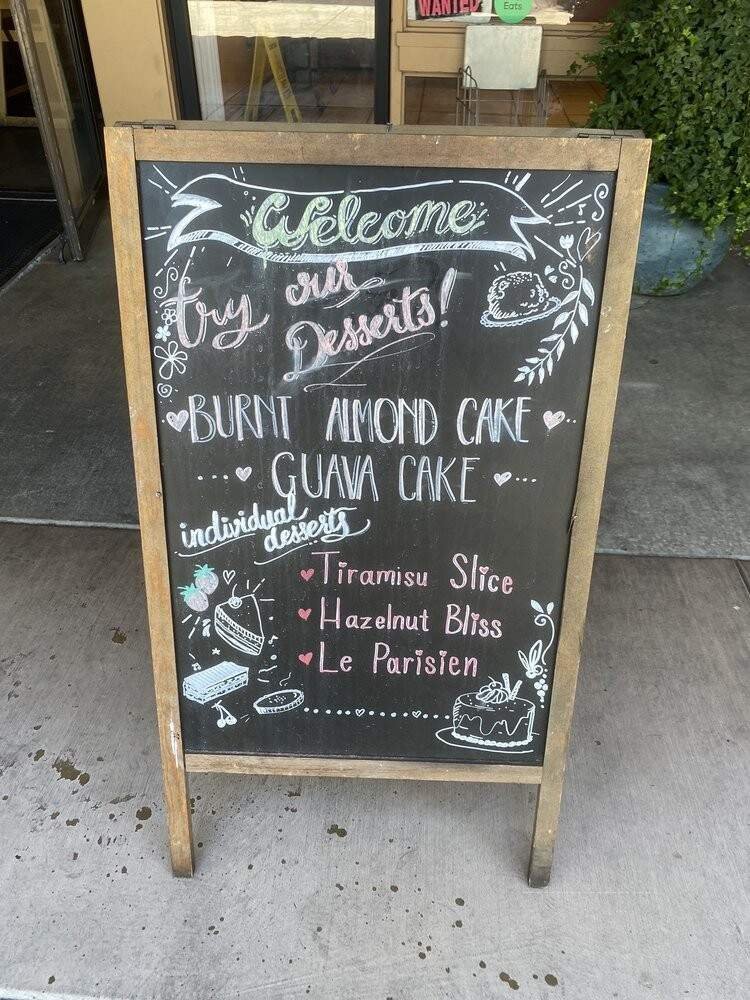 WANTED
Eats
Welcome
try our
Desserts!
BURNT ALMOND CAKE
GUAVA CAKE
individual
desserts
Tiramisu Slice
Hazelnut Bliss
Le Parisien